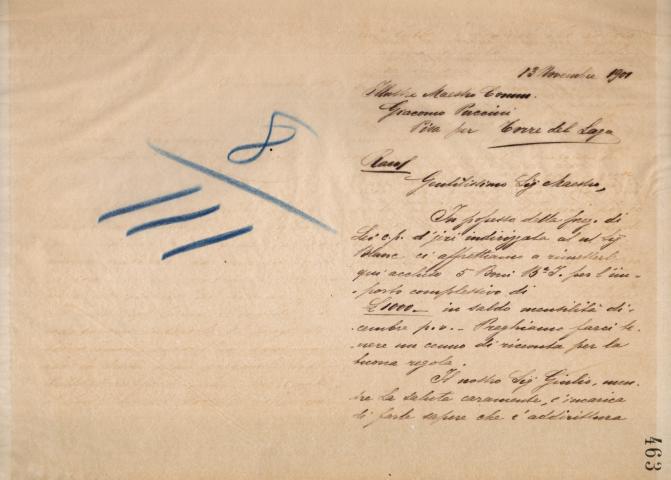 8
13 Novembre 1901
Illustre Maestro Comm.
Giacomo Puccini
Pisa per Torre del Lago
Racc
Gentilissimo Sig Maestro,
In possesso della preg. di
Lei c.p. d'jeri indirizzata al nt Sig
Blanc ci affrettiamo a rimetterle
qui accluso 5 Boni Bº I. per l'im-
-porto complessivo di
£ 1000 - in saldo mensilità di-
cembre p.v. - Preghiamo farci te-
nere un cenno di ricevuta per la
buona regola.
Il nostro Sig Giulio, men-
tre La saluta caramente, c'incarica
di farle sapere che è addirittura
463